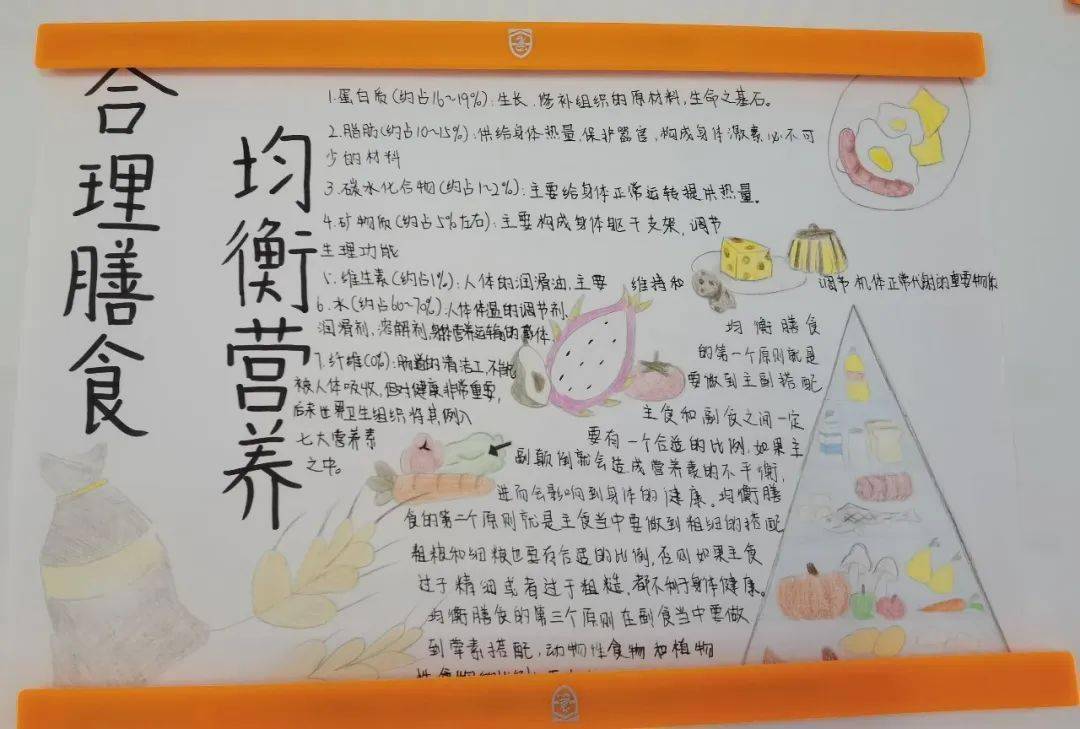 合理膳食
均衡营养
1.蛋白质(约占16~19%):生长、修补组织的原材料,生命之基石。
2.脂肪(约占10~15%):供给身体热量,保护器官,构成身体激素必不可
少的材料
3.碳水化合物(约占1~2%):主要给身体正常运转提供热量。
4.矿物质(约占5%左右):主要构成身体躯干支架,调节
生理功能
5.维生素(约占1%):人体的润滑油,主要 维持和 调节机体正常代谢的重要物质
6.水(约占60~70%):人体体温的调节剂,
润滑剂,溶解剂,营养运输的载体,
7.纤维(0%):肠道的清洁工,不能
被人体吸收,但对健康非常重要,
后来世界卫生组织将其例入
七大营养素
之中。
均衡膳食
的第一个原则就是
要做到主副搭配
主食和副食之间一定
要有一个合适的比例,如果主
副颠倒就会造成营养素的不平衡,
进而会影响到身体的健康。均衡膳
食的第二个原则就是主食当中要做到粗细的搭配
粗粮和细粮也要有合适的比例,否则如果主食
过于精细或者过于粗糙,都不利于身体健康。
均衡膳食的第三个原则在副食当中要做
到荤素搭配,动物性食物和植物